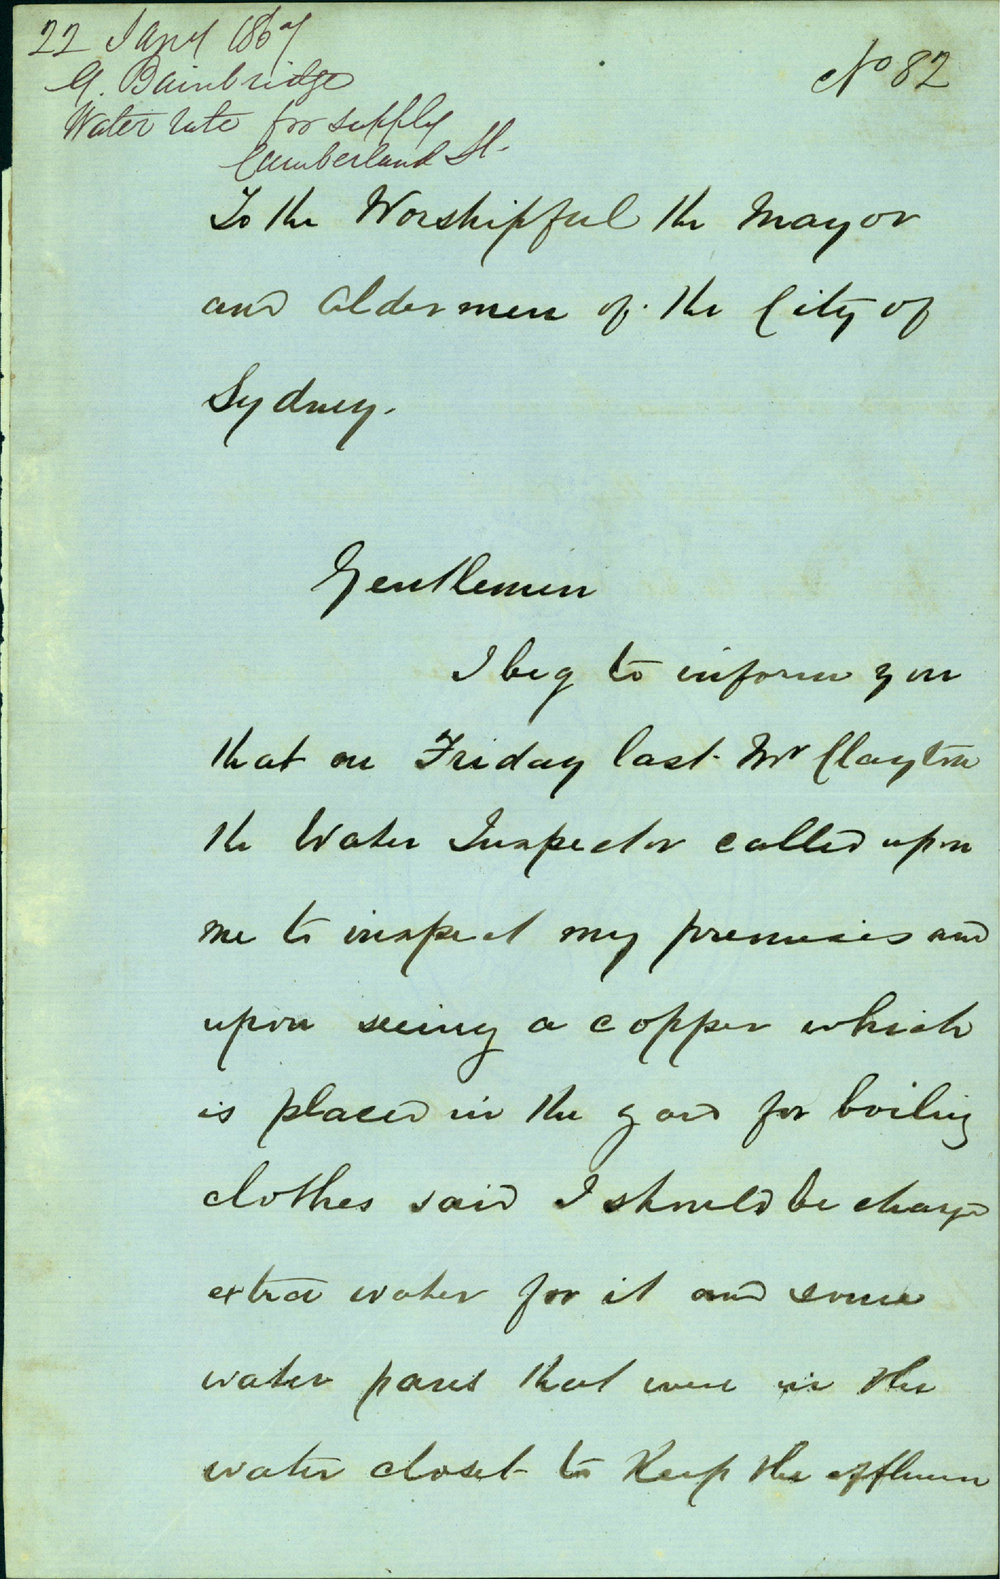 22 Jany 1867
G. Bainbridge
Water rate for supply
Cumberland St.
No 82
To the Worshipful the Mayor
and Aldermen of the City of
Sydney.
Gentlemen
I beg to inform you
that on Friday last Mr Clayton
the Water Inspector called upon
me to inspect my premises and
upon seeing a copper which
is placed in the yard for boiling
clothes said I should be charged
extra water for it and some
water pans that were in the
water closet to keep the